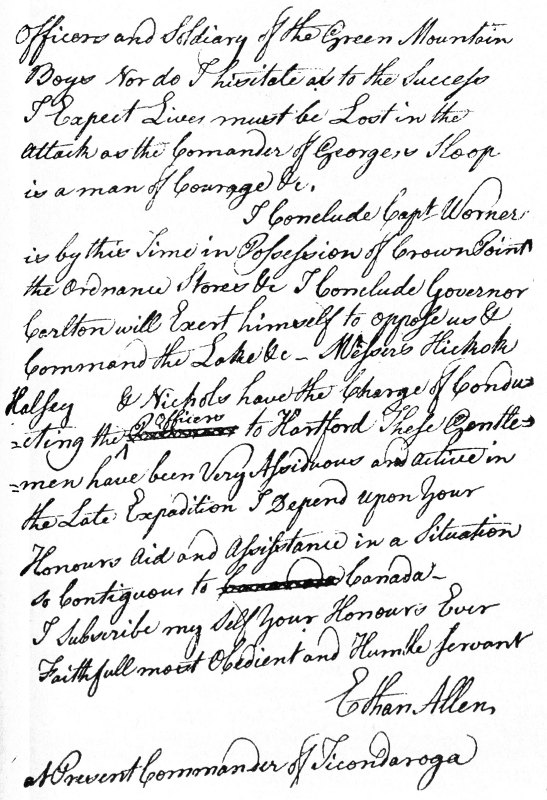 Officers and Soldiary of the Green Mountain
Boys Nor do I hisitate as to the Success
I Expect Lives must be Lost in the
Attack as the Comander of George,s Sloop
is a man of Courage &c.
I Conclude Capt Worner
is by this Time in Possession of Crown Point
the Ordnance Stores &c I Conclude Governor
Carlton will Exert himself to oppose us &
Command the Lake &c – Messers Hickok
Halsey & Nichols have the Charge of Condu=
=cting the Officers to Hartford These Gentle=
=men have been Very Assiduous and active in
the Late Expadition I Depend upon Your
Honours Aid and Assistance in a Situation
so Contiguous to Canada –
I subscribe my Self Your Honours Ever
Faithfull most Obedient and Humble Servant
Ethan Allen,
At Present Commander of Ticondaroga